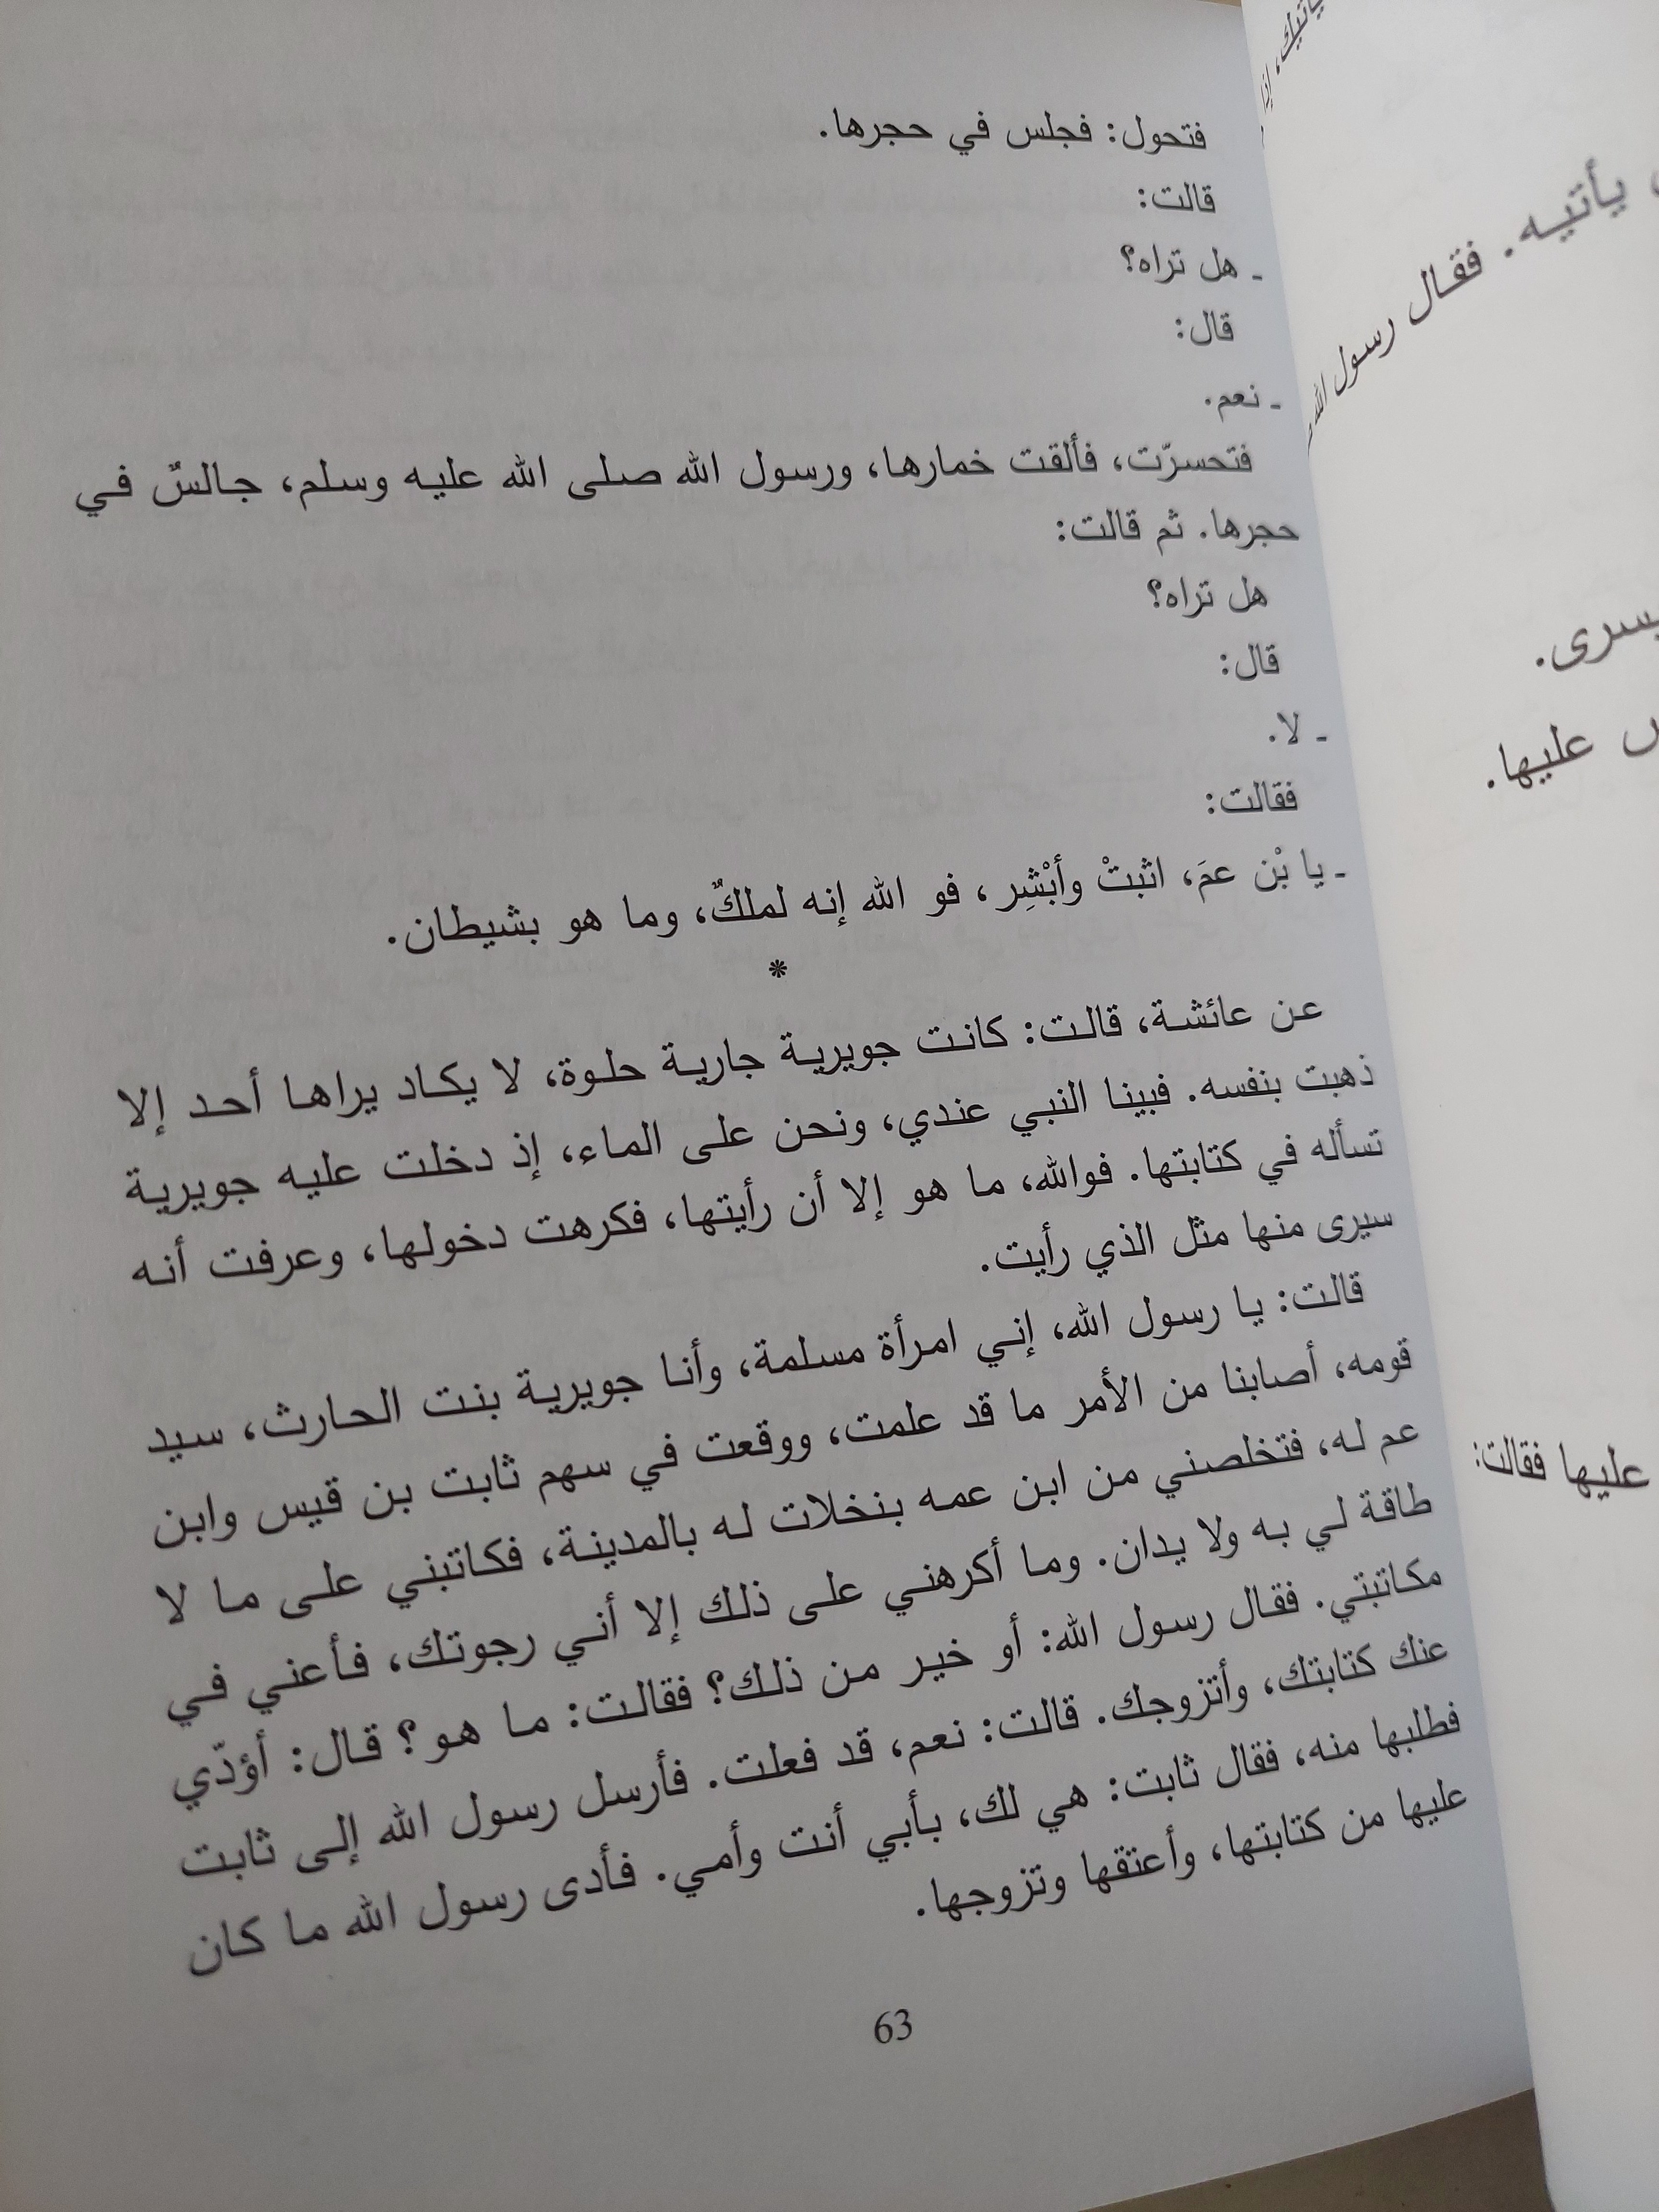 فتحول: فجلس في حجرها.
قالت:
ـ هل تراه؟
قال:
ـ نعم.
فتحسرّت، فألقت خمارها، ورسول الله صلى الله عليه وسلم، جالسٌ في
حجرها. ثم قالت:
هل تراه؟
قال:
ـ لا.
فقالت:
ـ يا بْن عمَ، اثبتْ وأبْشِر، فو الله إنه لملكٌ، وما هو بشيطان.
*
عن عائشة، قالت: كانت جويرية جارية حلوة، لا يكاد يراها أحد إلا
ذهبت بنفسه. فبينا النبي عندي، ونحن على الماء، إذ دخلت عليه جويرية
تسأله في كتابتها. فوالله، ما هو إلا أن رأيتها، فكرهت دخولها، وعرفت أنه
سيرى منها مثل الذي رأيت.
قالت: يا رسول الله، إني امرأة مسلمة، وأنا جويرية بنت الحارث، سيد
قومه، أصابنا من الأمر ما قد علمت، ووقعت في سهم ثابت بن قيس وابن
عم له، فتخلصني من ابن عمه بنخلات له بالمدينة، فكاتبني على ما لا
طاقة لي به ولا يدان. وما أكرهني على ذلك إلا أني رجوتك، فأعني في
مكاتبتي. فقال رسول الله: أو خير من ذلك؟ فقالت: ما هو؟ قال: أؤدّي
عنك كتابتك، وأتزوجك. قالت: نعم، قد فعلت. فأرسل رسول الله إلى ثابت
فطلبها منه، فقال ثابت: هي لك، بأبي أنت وأمي. فأدى رسول الله ما كان
عليها من كتابتها، وأعتقها وتزوجها.
63
يأتيه. فقال رسول الله
عليها.
عليها فقالت: